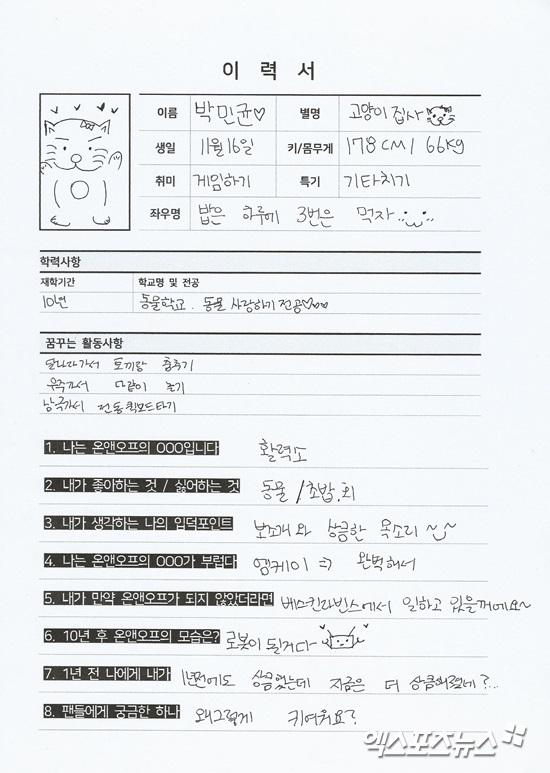 이 력 서
이름 박민균♡ 별명 고양이 집사
생일 11월 16일 키/몸무게 178CM / 66Kg
취미 게임하기 특기 기타치기
좌우명 밥은 하루에 3번은 먹자
학력사항
재학기간 학교명 및 전공
10년 동물학교. 동물 사랑하기 전공♡♡♡
꿈꾸는 활동사항
달나라가서 토끼랑 춤추기
우주가서 놀기
남극가서 전동퀵보드타기
1. 나는 온앤오프의 OOO입니다 활력소
2. 내가 좋아하는 것 / 싫어하는 것 동물 / 초밥, 회
3. 내가 생각하는 나의 입덕포인트 보조개와 상큼한 목소리
4. 나는 온앤오프의 OOO가 부럽다 엠케이 => 완벽해서
5. 내가 만약 온앤오프가 되지 않았더라면 베스킨라빈스에서 일하고 있을꺼에요~
6. 10년 후 온앤오프의 모습은? 로봇이 될거다
7. 1년 전 나에게 내가 1년전에도 상큼했는데 지금은 더 상큼해졌네?...
8. 팬들에게 궁금한 하나 왜그렇게 귀여워요?
엑스포츠뉴스